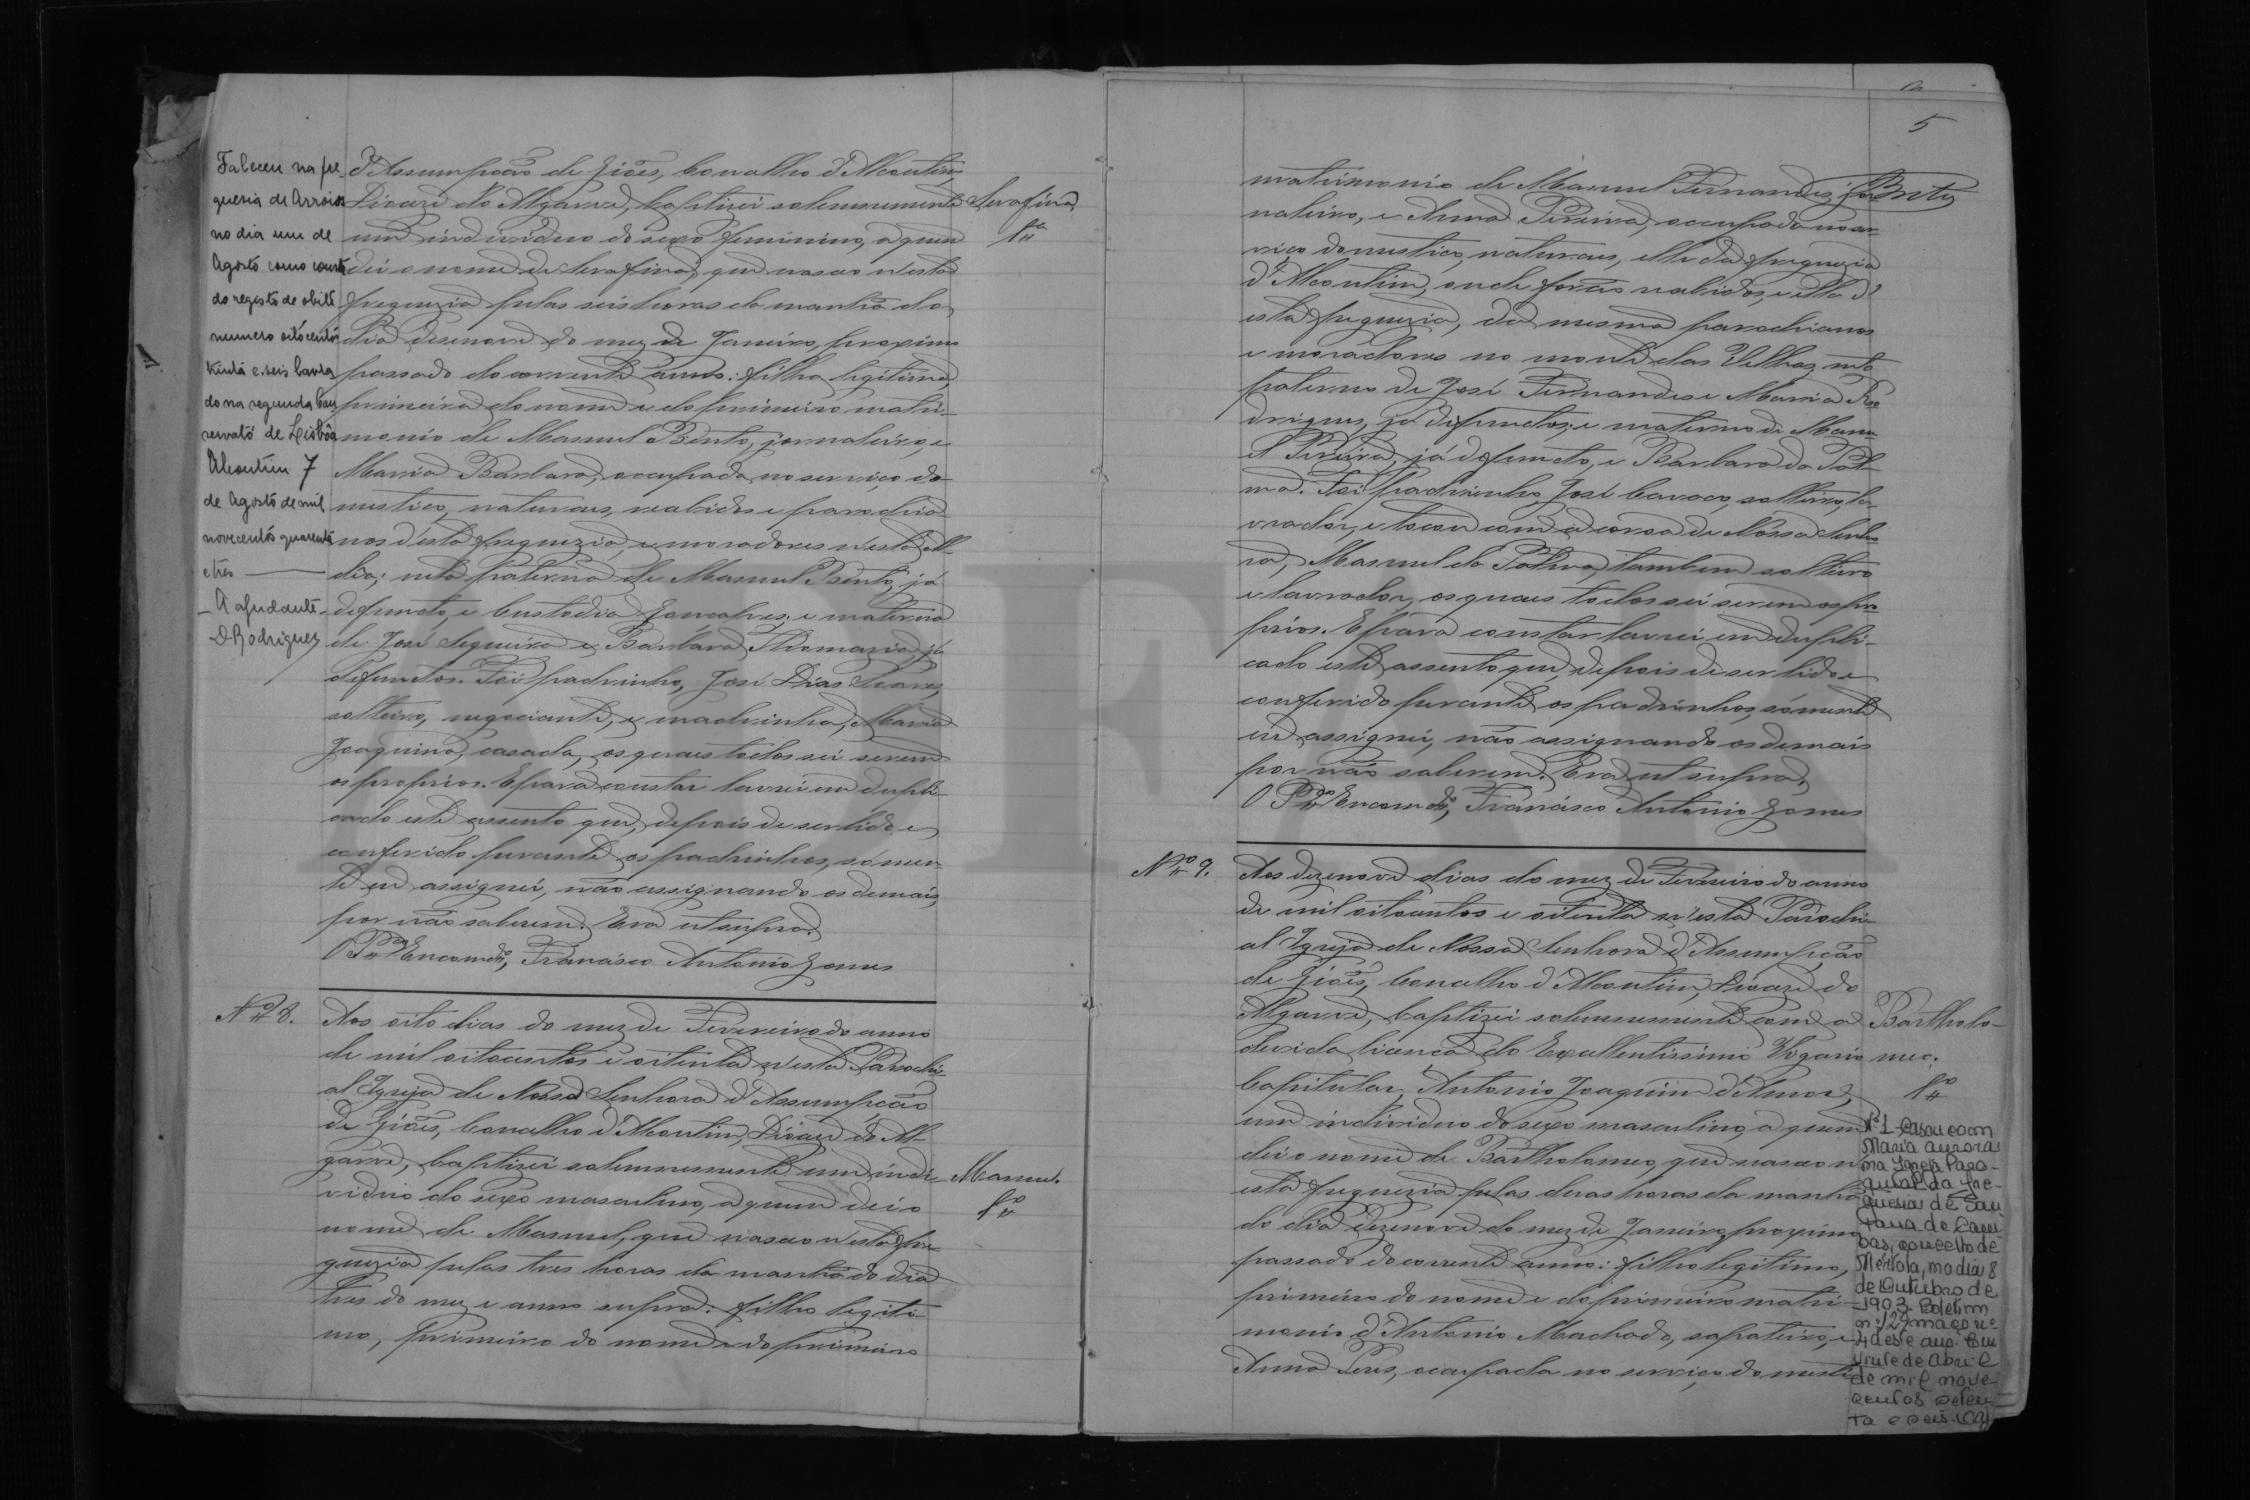 Faleceu na fre-
guesia de Arroios
no dia um de
Agosto como consta
do registo de obito
numero oitocentos
trinta e seis lavra
do na segunda Con
servató de Lisbôa
Alcoutim 7
de Agosto de mil
novecentos quarenta
e tres
A ajudante
D Rodrigues
d'Assumpção de Giões, Concelho d'Alcoutim
Diocese do Algarve, baptizei solemnemente
um individuo do sexo feminino, a quem
dei o nome de Serafina, que nasceu n'esta
freguezia pelas seis horas da manhã do
dia desenove do mez de Janeiro, proximo
passado do corrente anno: filha legitima
primeira do nome e do primeiro matri-
monio de Manuel Bento, jornaleiro, e
Maria Barbara, occupada no serviço do-
mestico, naturaes, recebidos e parochia-
nos d'esta freguezia, e moradores n'esta Al-
dêa; neta paterna de Manuel Bento, já
defuncto, e Custodia Gonçalves; e materna
de José Sequeira e Barbara Thomazia, já
defuntos. Foi padrinho, José Dias
solteiro, negociante, e madrinha, Maria
Joaquina, casada, os quaes todos sei serem
os proprios. E para constar lavrei em dupli-
cado este assento que, depois de ser lido e
conferido perante os padrinhos, sómen-
te eu assignei, não assignando os demais,
por não saberem. Era ut supra.
O Pr Encomdo, Francisco Antonio Gomes
Serafina
Fa
Nº 8.
Aos oito dias do mez de Fevereiro do anno
de mil oitocentos e oitenta n'esta Parochi-
al Igreja de Nossa Senhora d'Assumpção
de Giões, Concelho d'Alcoutim, Diocese do Al-
garve, baptizei solemnemente um indi-
viduo do sexo masculino, a quem dei o
nome de Manuel, que nasceu n'esta fre-
guezia pelas tres horas da manhã do dia
tres do mez e anno supra: filho legiti-
mo, primeiro do nome e do primeiro
Manuel.
fo
5
matrimonio de Manuel Fernandes, jor
Bnto
naleiro, e Anna Pereira, occupada no ser-
viço domestico, naturaes, elle da freguezia
d'Alcoutim, onde foram recebidos, e ella d'
esta freguezia, da mesma parochianos
e moradores no monte das Velhas; neto
paterno de José Fernandes e Maria Ro-
drigues, já defunctos; e materno de Manu-
el Pereira, já defuncto, e Barbara da Pal-
ma. Foi padrinho, José Cavaco, solteiro, la-
vrador, e tocou com a coroa de Nossa Senho-
ra, Manuel da Palma, tambem solteiro
e lavrador, os quaes todos sei serem os pro-
prios. E para constar lavrei em dupli-
cado este assento que, depois de ser lido e
conferido perante os padrinhos, sómente
eu assignei, não assignando os demais
por não saberem. Era ut supra.
O Pr Encomdo, Francisco Antonio Gomes
Nº 9.
Aos dezenove dias do mez de Fevereiro do anno
de mil oitocentos e oitenta n'esta Parochi-
al Igreja de Nossa Senhora d'Assumpção
de Giões, Concelho d'Alcoutim, Diocese do
Algarve, baptizei solemnemente com a
devida licença do Excellentissimo Vigario
Capitular, Antonio Joaquim
um individuo do sexo masculino, a quem
dei o nome de Bartholomeo, que nasceu n'
esta freguezia pelas duas horas da manhã
do dia dezenove do mez de Janeiro, proximo
passado do corrente anno: filho legitimo,
primeiro do nome e do primeiro matri-
monio d'Antonio Machado, sapateiro, e
Anna Peres, occupada no serviço domesti
Bartholo-
meo.
fo
Nº 1 Casou com
Maria Aurora
na Igreja Paro-
quial da fre-
guesia de San
tana de Cam
bas, concelho de
Mértola, no dia 8
de Outubro de
1903. Boletim
nº 129 maço nº
4 deste ano. Em
vinte de Abril
de mil nove-
centos seten-
ta e seis.
AFAR